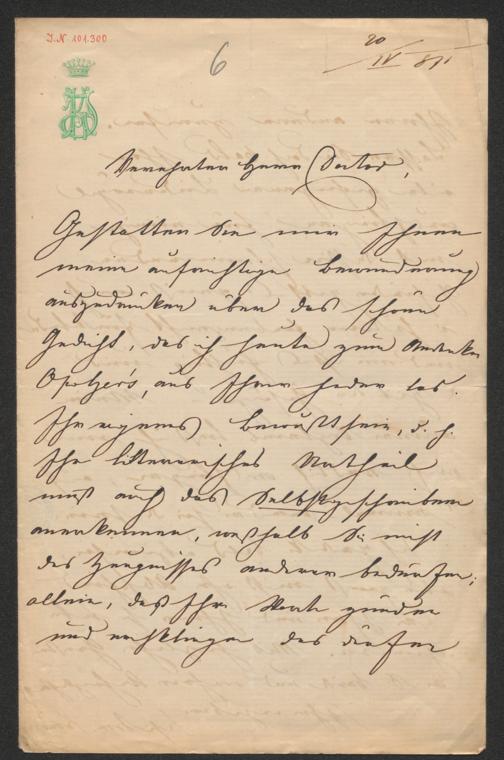 I.N 101.300
6
20/IV 871
Verehrter Herr Doctor,
Gestatten Sie mir Ihnen
meine aufrichtige Bewunderung
auszudrücken über das schöne
Gedicht, das ich heute zum Andenken
Opolzer's, aus Ihrer Feder las.
Ihr eigenes Bewußtsein, d. h.
Ihr litterarisches Urtheil
muß auch das Selbstgeschriebene
anerkennen, weßhalb Sie nicht
des Zeugnisses anderer bedürfen;
allein, daß Ihre Worte zünden
und nachklingen das dürfen